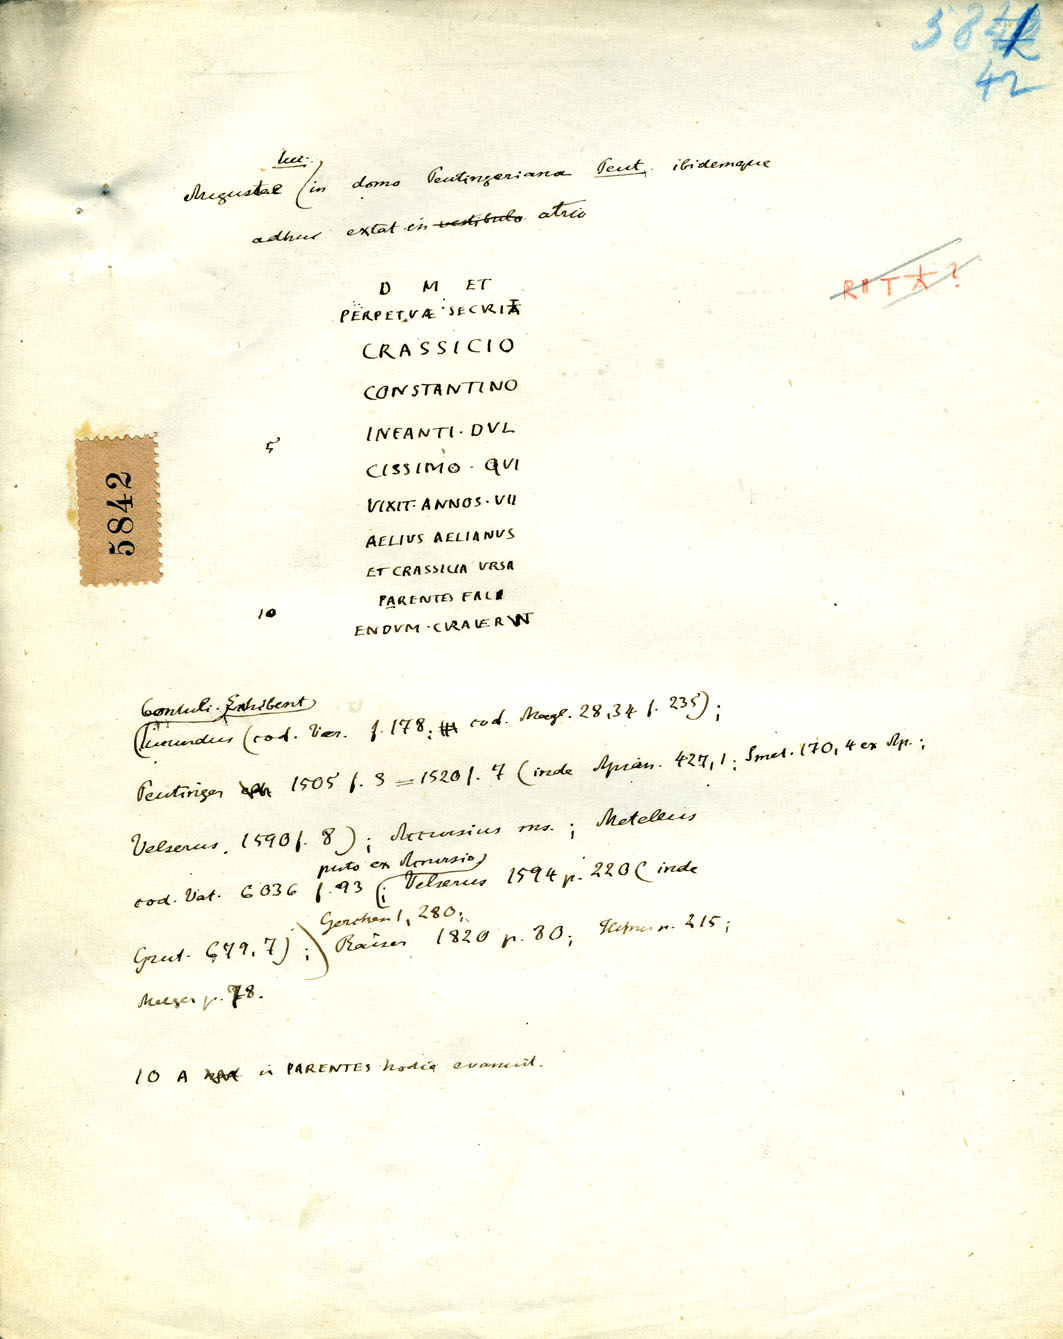 5842
42
Iuc.
Augustae (in domo Peutingeriana Peut. ibidemque
adhuc extat in vestibulo atrio
RITA?
D M ET
PERPETVAE SECVRITA
CRASSICIO
CONSTANTINO
5 INFANTI · DVL
CISSIMO · QVI
VIXIT · ANNOS · VII
AELIVS AELIANVS
ET CRASSICIA VRSA
10 PARENTES FACI
ENDVM · CVRAVERVNT
5842
Contuli. Exhibent
(Iucundus (cod. Ver. f. 178; cod. Magl. 28,34 f. 235);
Peutinger 1505 f. 3 = 1520 f. 7 (inde Apian. 427,1; Smet. 170,4 ex Ap.;
Velserus 1590 f. 8); Accursius ms.; Metellus
puto ex Accursio)
cod. Vat. 6036 f. 93 (; Velserus 1594 p. 220 (inde
Gercken 1, 280;
Grut. 679,7); Raiser 1820 p. 80; Hefner p. 215;
Mezger p. 78.
10 A in PARENTES hodie evanuit.